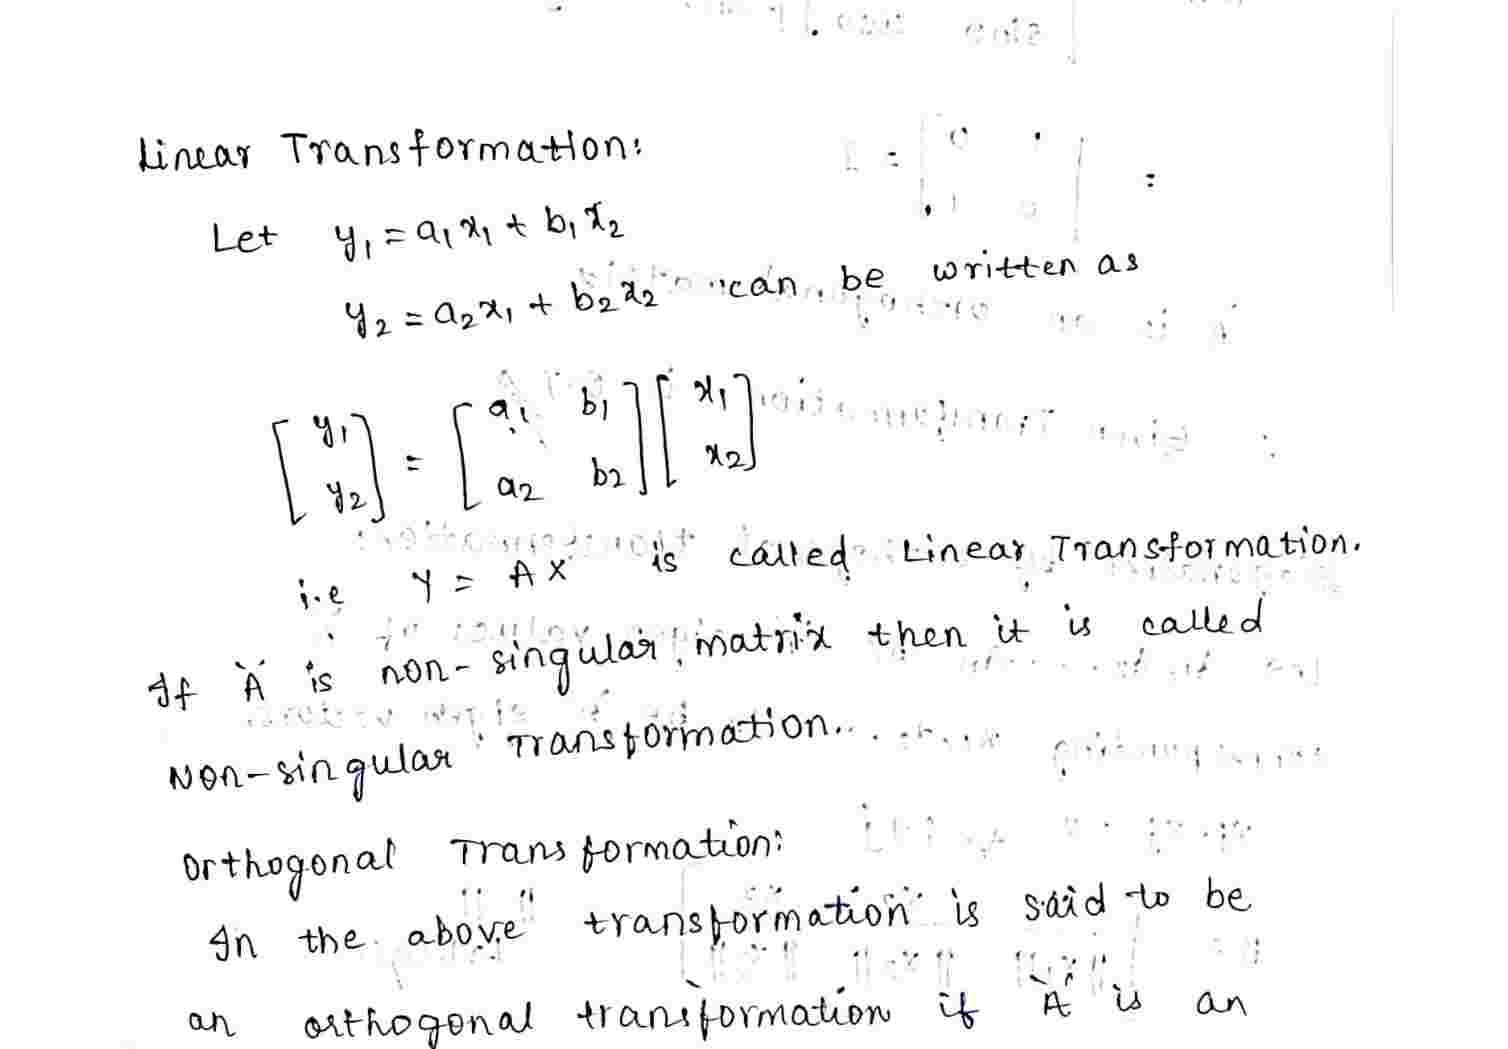 Linear Transformation:
Let y₁ = a₁x₁ + b₁x₂
y₂ = a₂x₁ + b₂x₂ can be written as
[y₁ y₂] = [a₁ b₁ a₂ b₂] [x₁ x₂]
i.e Y = AX is called Linear Transformation.
If 'A' is non-singular matrix then it is called
Non-singular Transformation.
Orthogonal Transformation:
In the above transformation is said to be
an orthogonal transformation if 'A' is an